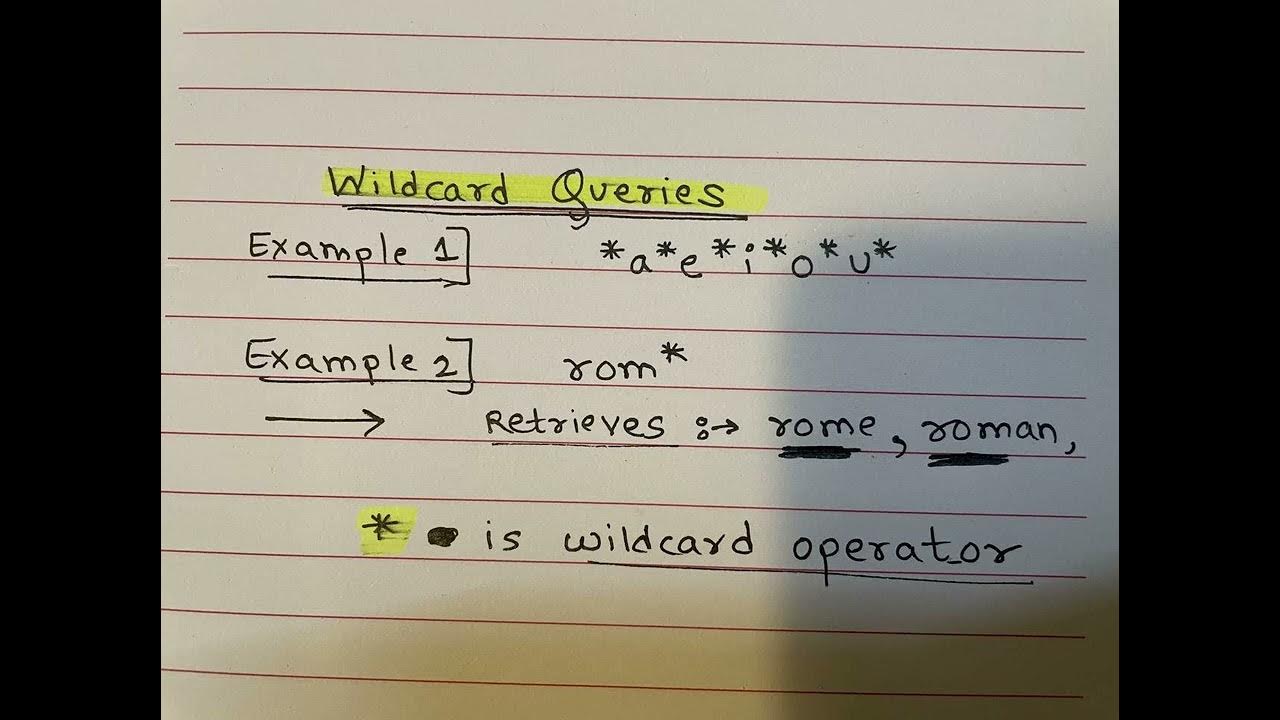 Wildcard Queries
Example 1] *a*e*i*o*u*
Example 2] rom*
→ Retrieves :→ rome, roman,
* is wildcard operator